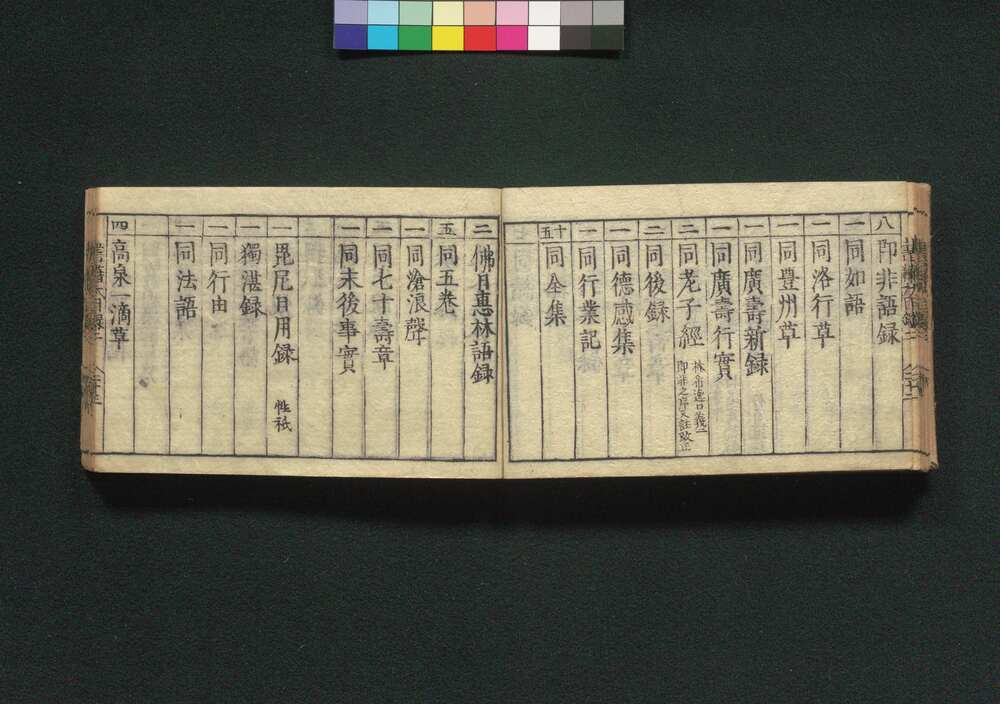 八 即非語録
一 同如語
一 同洛行草
一 同豊州草
一 同廣壽新録
一 同廣壽行實
二 同老子經 林希逸口義ニ 即非之序又註改正
二 同後録
一 同德感集
一 同行業記
十五 同全集
二 佛日恵林語録
五 同五巻
一 同滄浪聲
二 同七十壽章
一 同末後事實
一 毘尼日用録 性祇
一 獨湛録
一 同行由
一 同法語
四 高泉一滴草